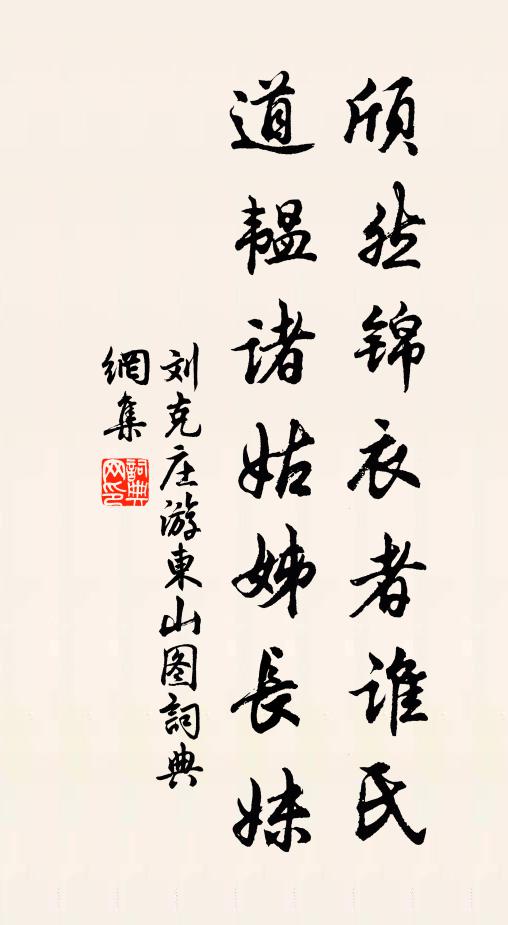 颀然锦衣者谁氏
道韫诸姑姊長妹
刘克庄游東山图詞典
網集
詞典网印